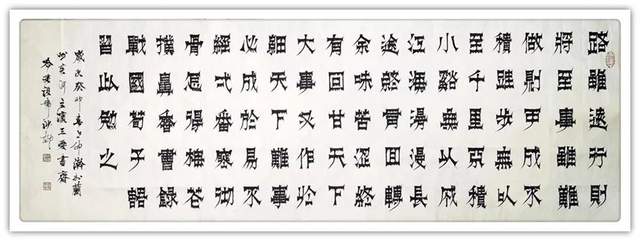 路雖遠行則
將至事雖難
做則必成不
積跬步无以
至千里不積
小谿无以成
江海漫漫長
途終有回轉
余味苦澀終
有回甘天下
大事必作於
細天下難事
必成於易不
經弍番寒徹
骨怎得梅花
撲鼻香書錄
戰國荀子語
習此勉之
歲次癸卯春月仲瀚於蘭
州黃河之濱王書齋